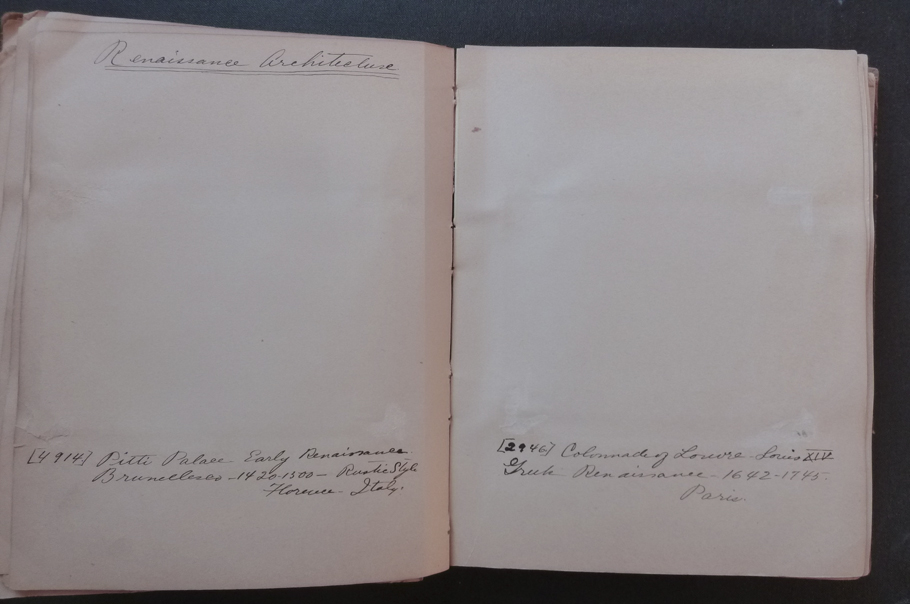 Renaissance Architecture
[4914] Pitti Palace Early Renaissance
Brunellesco - 1420-1500 - Rustic Style
Florence Italy.
[2946] Colonnade of Louvre - Louis XIV
Greek Renaissance - 1642-1745.
Paris.